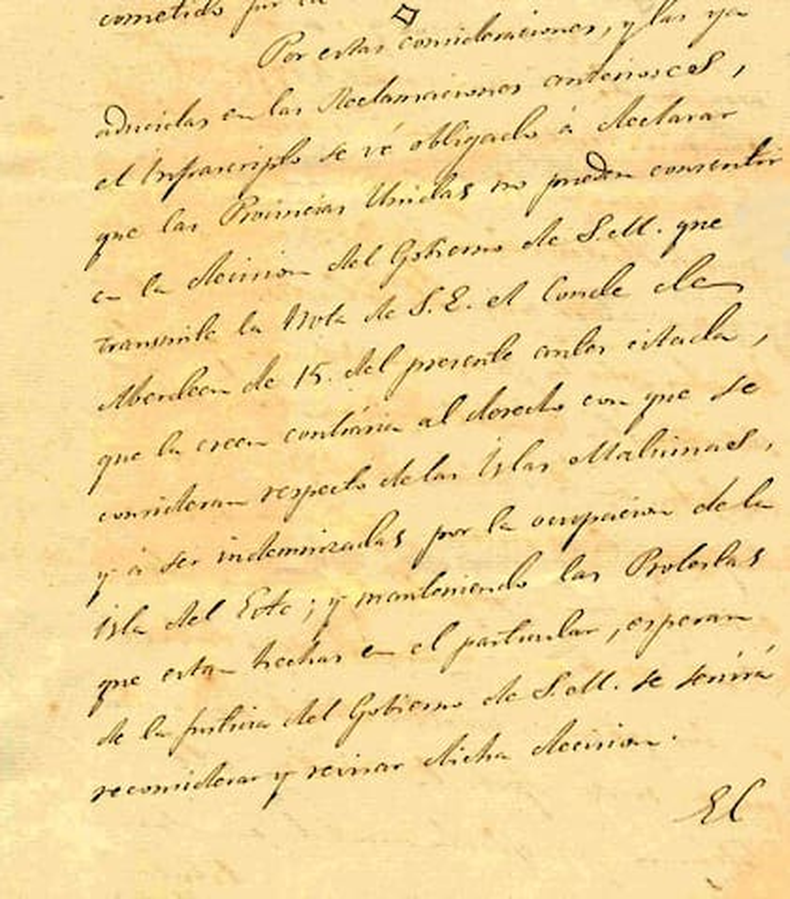 cometido por la
Por estas consideraciones, y las ya
aducidas en las Reclamaciones anteriores,
el Infrascripto se vé obligado á declarar
que las Provincias Unidas no pueden consentir
en la decision del Gobierno de S.M. que
transmite la Nota de S.E. el Conde de
Aberdeen de 15. del presente antes citada,
que la creen contraria al derecho con que se
consideran respecto de las Islas Malvinas,
y á ser indemnizadas por la ocupacion de la
Isla del Este; y manteniendo las Protestas
que estan hechas en el particular, esperan
de la justicia del Gobierno de S.M. se servirá
reconsiderar y revisar dicha decision.
El